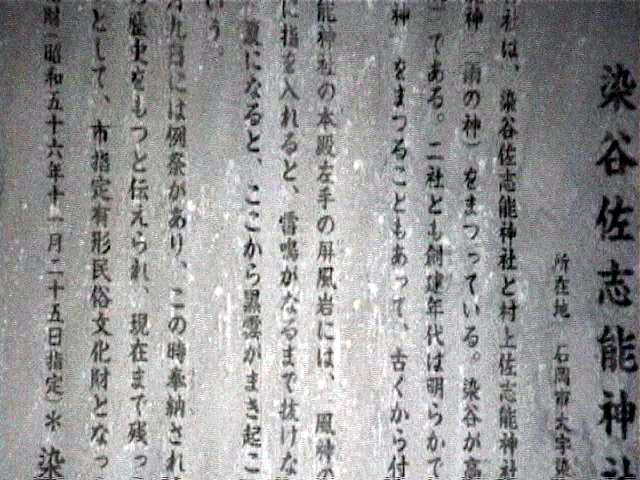 染谷佐志能神社
所在地　石岡市大字染
社は、染谷佐志能神社と村上佐志能神社
神（雨の神）をまつっている。染谷が高
）である。二社とも創建年代は明らかで
神　をまつることもあって、古くから付
能神社の本殿左手の屏風岩には、　風神の
に指を入れると、雷鳴がなるまで抜けな
夏になると、ここから黒雲がまき起こ
いう。
月九日には例祭があり、この時奉納され
歴史をもつと伝えられ、現在まで残っ
として、市指定有形民俗文化財となっ
財（昭和五十六年十一月二十五日指定）＊　染